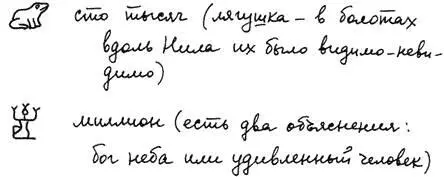 сто тысяч (лягушка – в болотах
вдоль Нила их было видимо-неви-
димо)
миллион (есть два объяснения:
бог неба или удивленный человек)